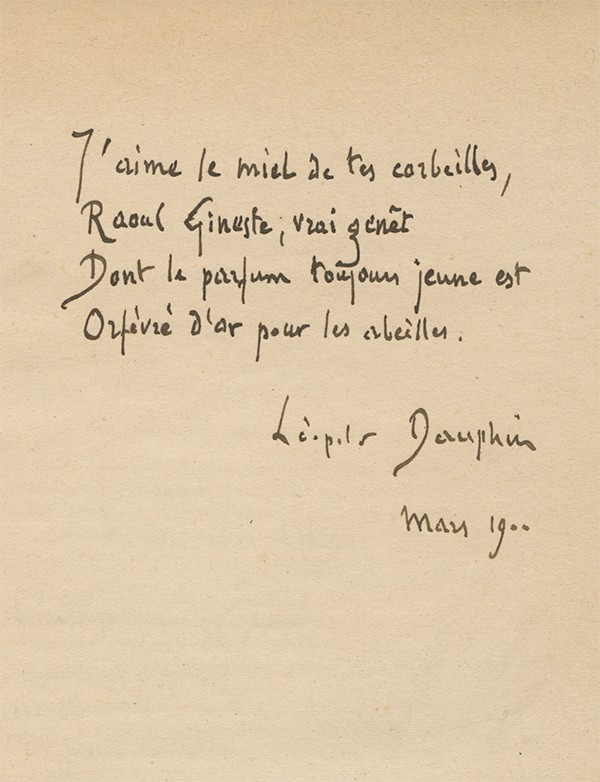 J'aime le miel de tes corbeilles,
Raoul Gineste, vrai genêt
Dont le parfum toujours jeune est
Orfévré d'or pour les abeilles.
Léopold Dauphin
Mars 1900